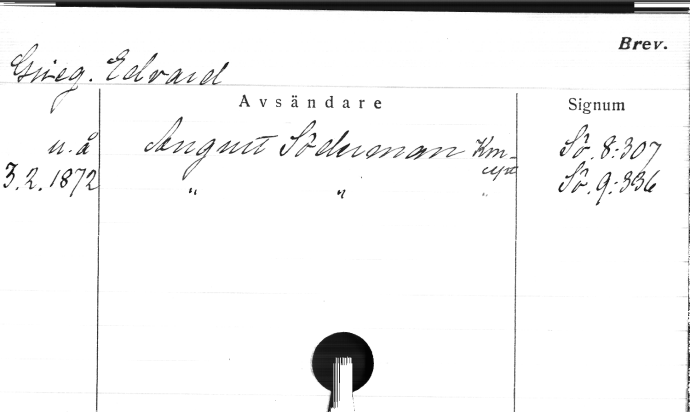 Brev.
Grieg. Edvard
Avsändare
Signum
u. å August Söderman Sö. 8:307
3.2.1872 " " " Sö. 9:336